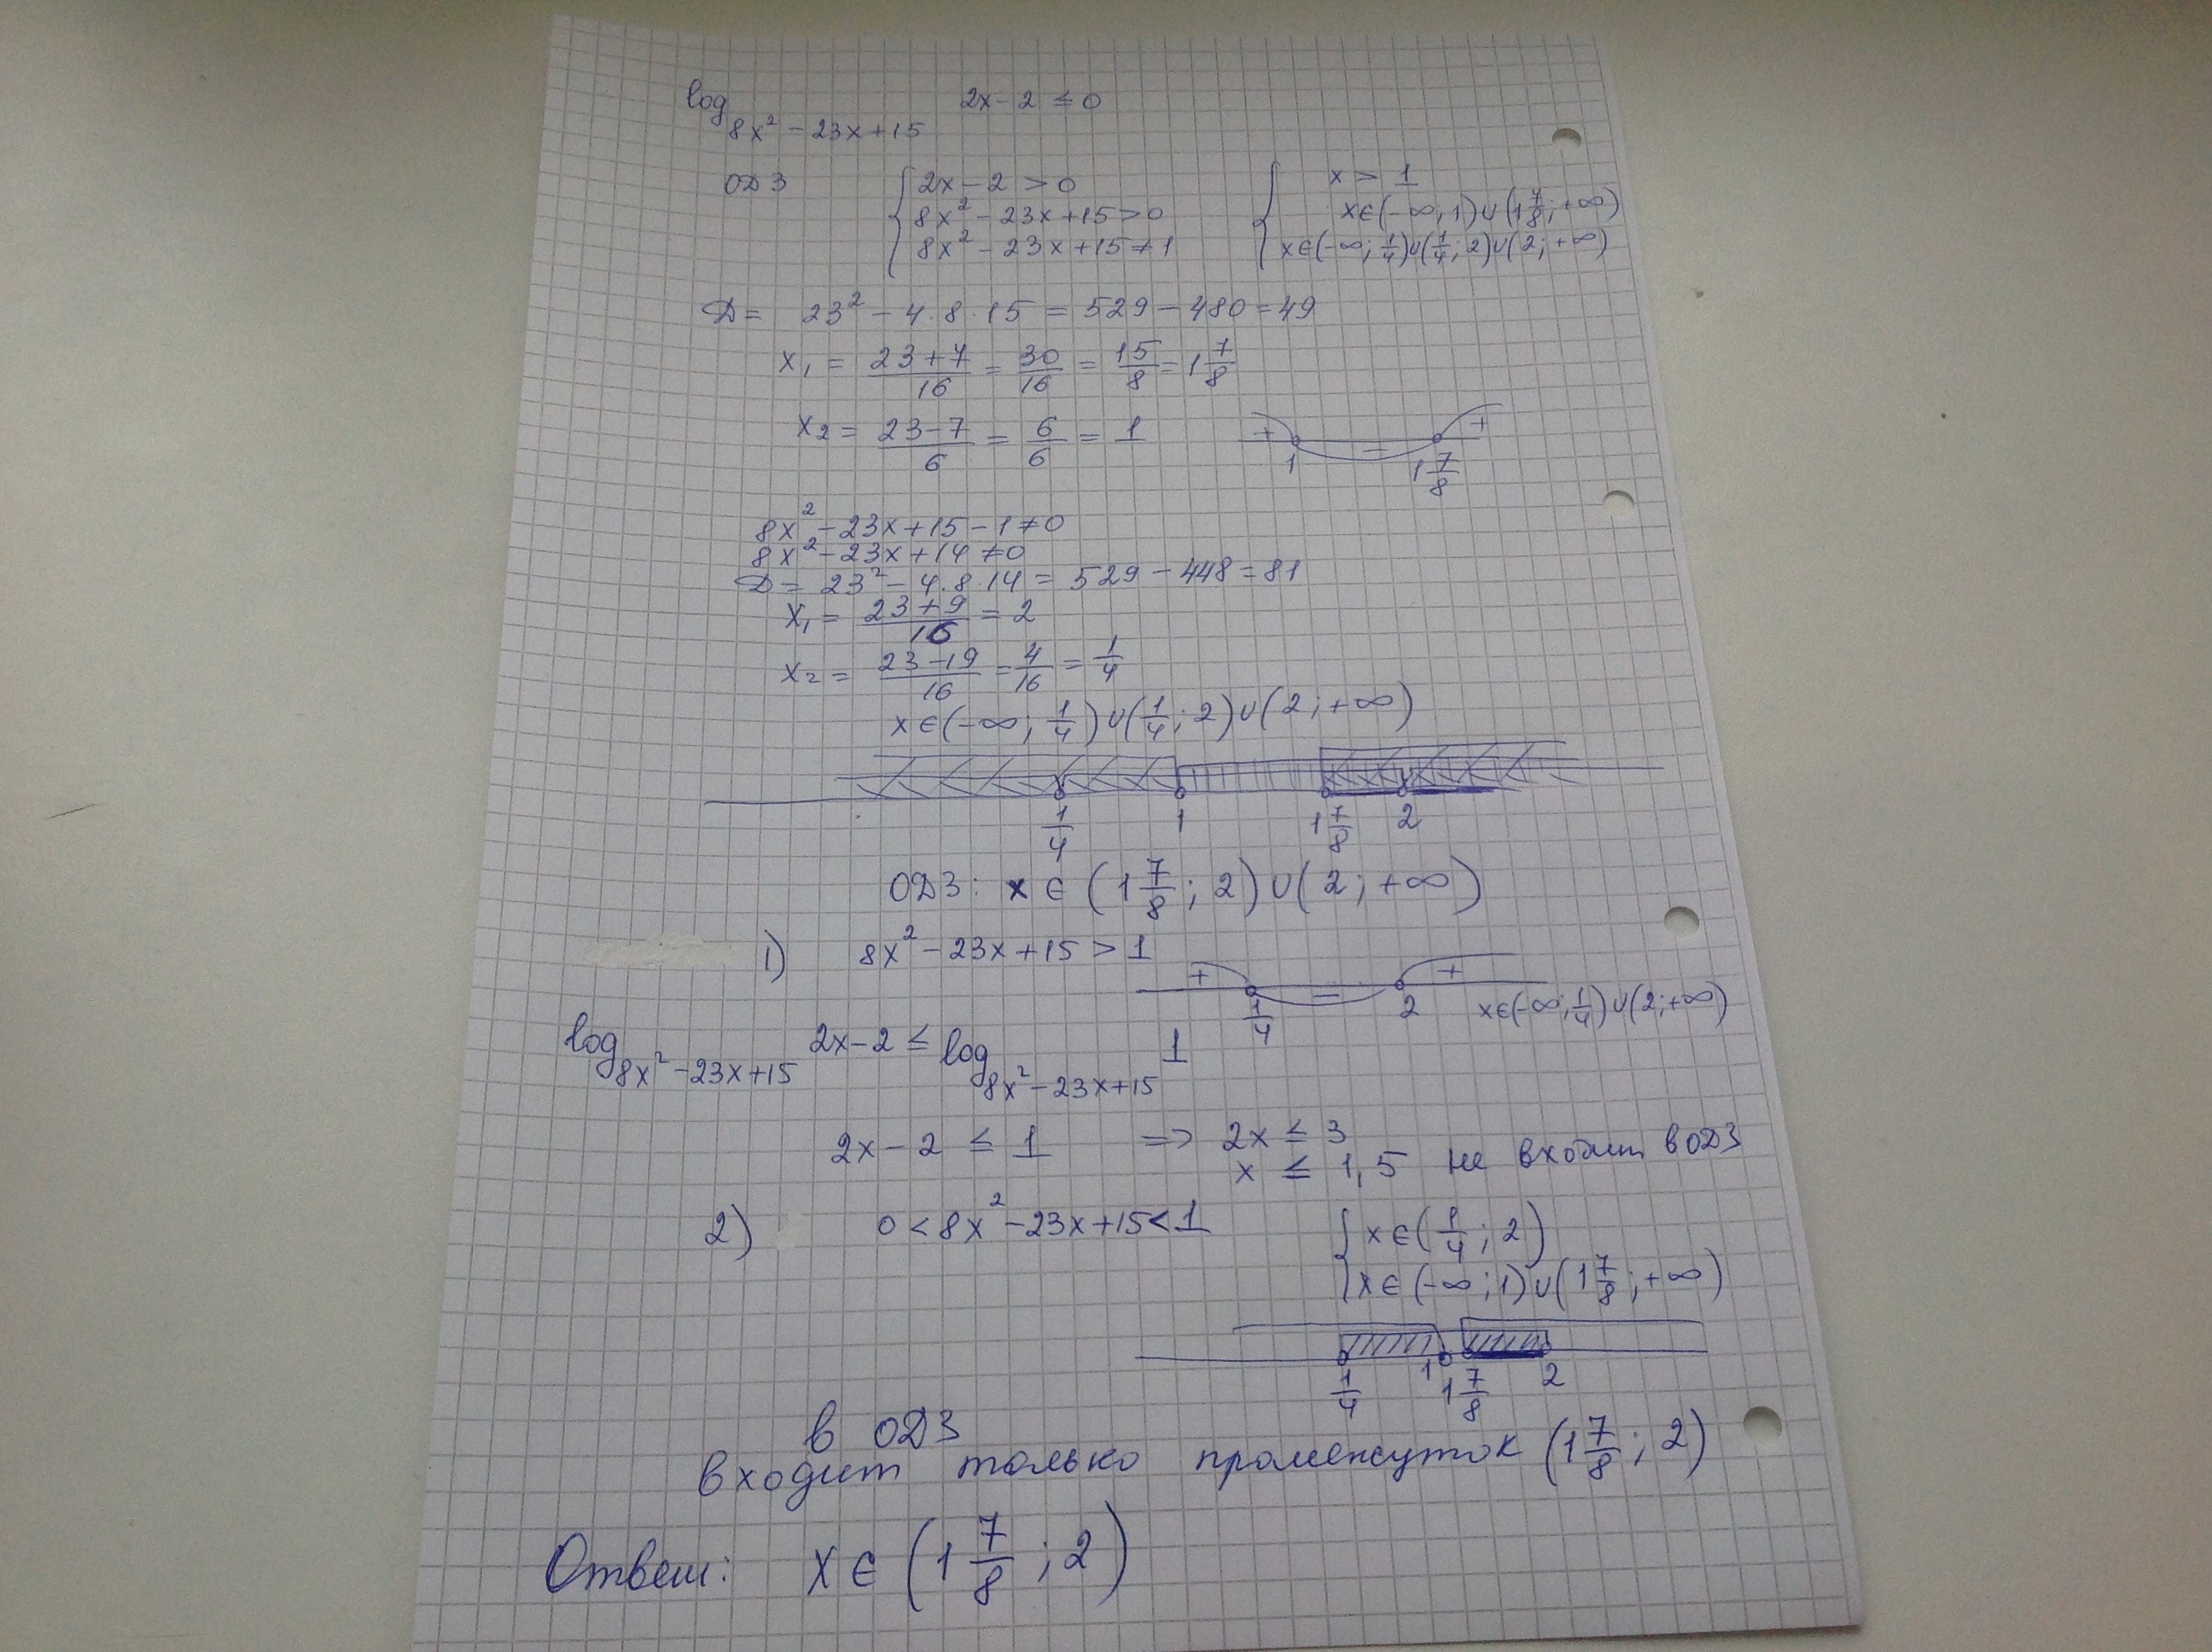 log 8x² - 23x + 15 2x - 2 ≤ 0
ОДЗ { 2x - 2 > 0 { x > 1
8x² - 23x + 15 > 0 x ∈ (-∞; 1) ∪ (1 7/8; +∞)
8x² - 23x + 15 ≠ 1 x ∈ (-∞; 1/4) ∪ (1/4; 2) ∪ (2; +∞)
D = 23² - 4 · 8 · 15 = 529 - 480 = 49
x₁ = (23 + 7)/16 = 30/16 = 15/8 = 1 7/8
x₂ = (23 - 7)/6 = 6/6 = 1
+ - +
1 1 7/8
8x² - 23x + 15 - 1 ≠ 0
8x² - 23x + 14 ≠ 0
D = 23² - 4 · 8 · 14 = 529 - 448 = 81
x₁ = (23 + 9)/16 = 2
x₂ = (23 - 19)/16 = 4/16 = 1/4
x ∈ (-∞; 1/4) ∪ (1/4; 2) ∪ (2; +∞)
1/4 1 1 7/8 2
ОДЗ: x ∈ (1 7/8; 2) ∪ (2; +∞)
1) 8x² - 23x + 15 > 1
+ - +
1/4 2 x ∈ (-∞; 1/4) ∪ (2; +∞)
log 8x² - 23x + 15 2x - 2 ≤ log 8x² - 23x + 15 1
2x - 2 ≤ 1 => 2x ≤ 3
x ≤ 1,5 не входит в ОДЗ
2) 0 < 8x² - 23x + 15 < 1 { x ∈ (1/4; 2)
x ∈ (-∞; 1) ∪ (1 7/8; +∞)
1/4 1 1 7/8 2
в ОДЗ
входит только промежуток (1 7/8; 2)
Ответ: x ∈ (1 7/8; 2)